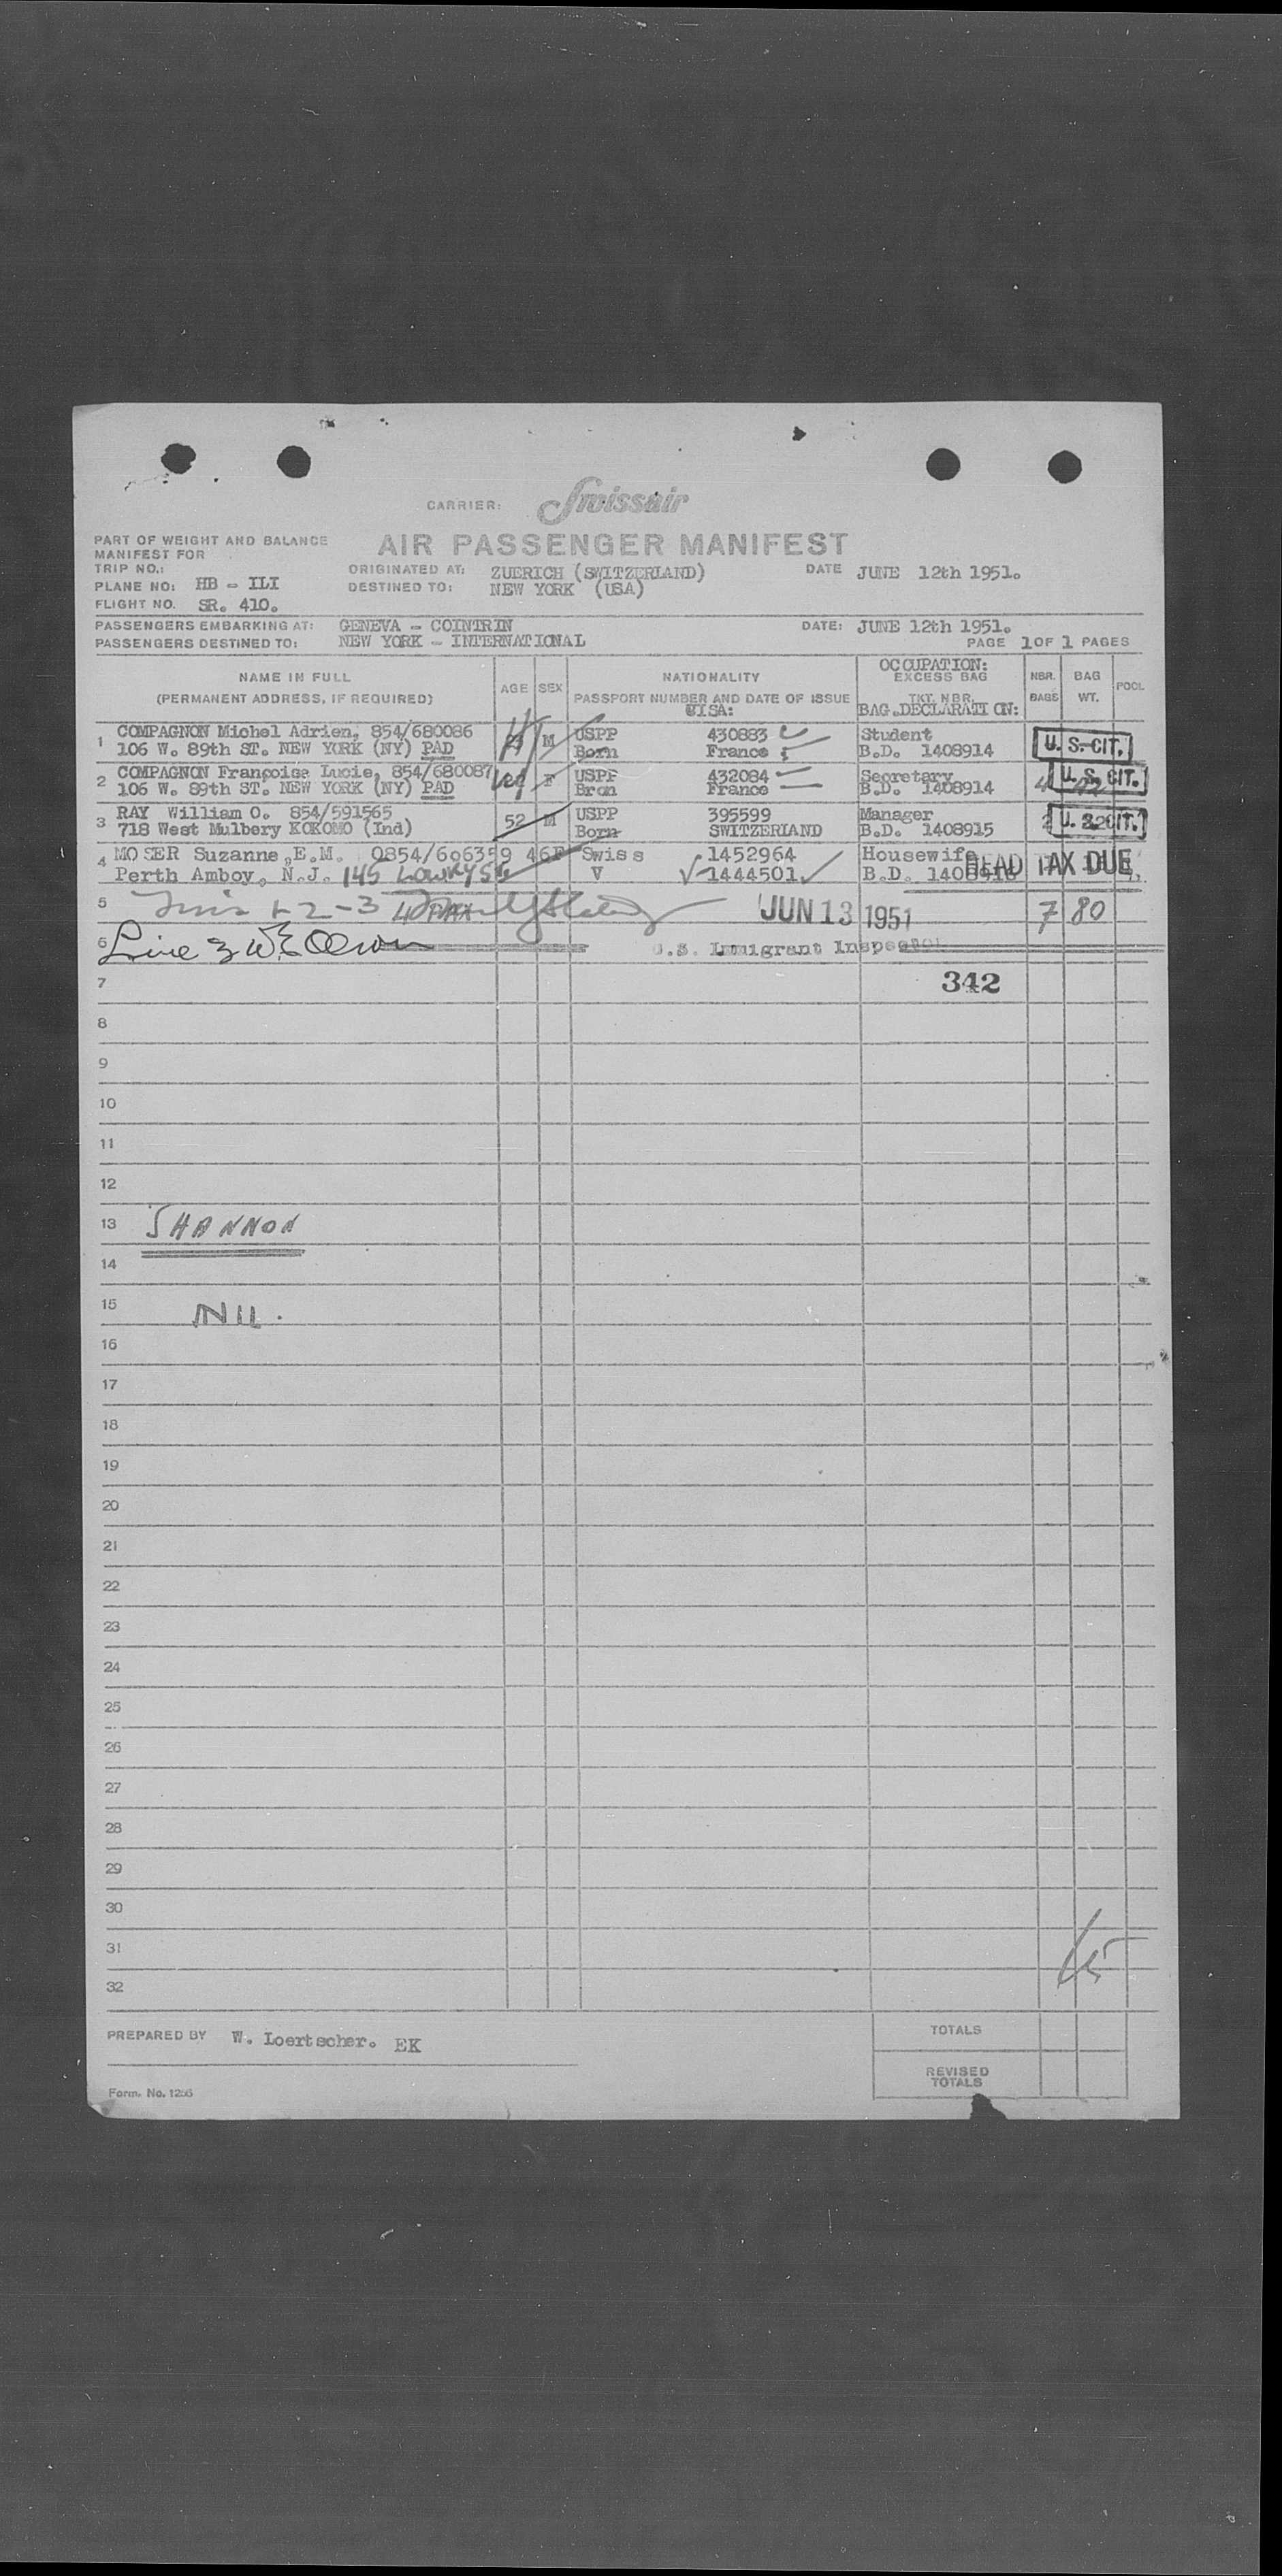 CARRIER: Swissair
PART OF WEIGHT AND BALANCE
MANIFEST FOR
AIR PASSENGER MANIFEST
TRIP NO.:
ORIGINATED AT: ZUERICH (SWITZERLAND) DATE JUNE 12th 1951.
PLANE NO: HB - ILI
DESTINED TO: NEW YORK (USA)
FLIGHT NO. SR. 410.
PASSENGERS EMBARKING AT: GENEVA - COINTRIN DATE: JUNE 12th 1951.
PASSENGERS DESTINED TO: NEW YORK - INTERNATIONAL PAGE 1 OF 1 PAGES
NAME IN FULL
(PERMANENT ADDRESS, IF REQUIRED)
AGE SEX
NATIONALITY
PASSPORT NUMBER AND DATE OF ISSUE
VISA:
OCCUPATION:
EXCESS BAG
TKT. NBR.
BAG.DECLARATION:
NBR. BAGS
BAG WT.
POOL
1 COMPAGNON Michel Adrien, 854/680086 M USPP 430883 Student U. S. CIT.
106 W. 89th ST. NEW YORK (NY) PAD Born France B.D. 1408914
2 COMPAGNON Françoise Lucie, 854/680087 F USPP 432084 Secretary U. S. CIT.
106 W. 89th ST. NEW YORK (NY) PAD Bron France B.D. 1408914 4
3 RAY William O. 854/591565 52 M USPP 395599 Manager U. S. CIT.
718 West Mulbery KOKOMO (Ind) Born SWITZERLAND B.D. 1408915
4 MOSER Suzanne,E.M. 0854/606359 46F Swiss 1452964 Housewife HEAD TAX DUE
Perth Amboy, N.J. 145 LOWRY ST V 1444501 B.D.
5 1-2-3 4 PAX JUN 13 1951 7 80
6 Line 3 U.S. Immigrant Inspector
7 342
8
9
10
11
12
13 SHANNON
14
15 NIL.
16
17
18
19
20
21
22
23
24
25
26
27
28
29
30
31
32
PREPARED BY W. Loertscher. EK
TOTALS
REVISED
TOTALS
Form. No. 1256